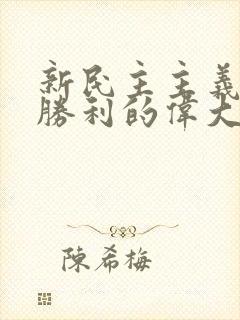 新民主主義
勝利的偉大
陳希梅